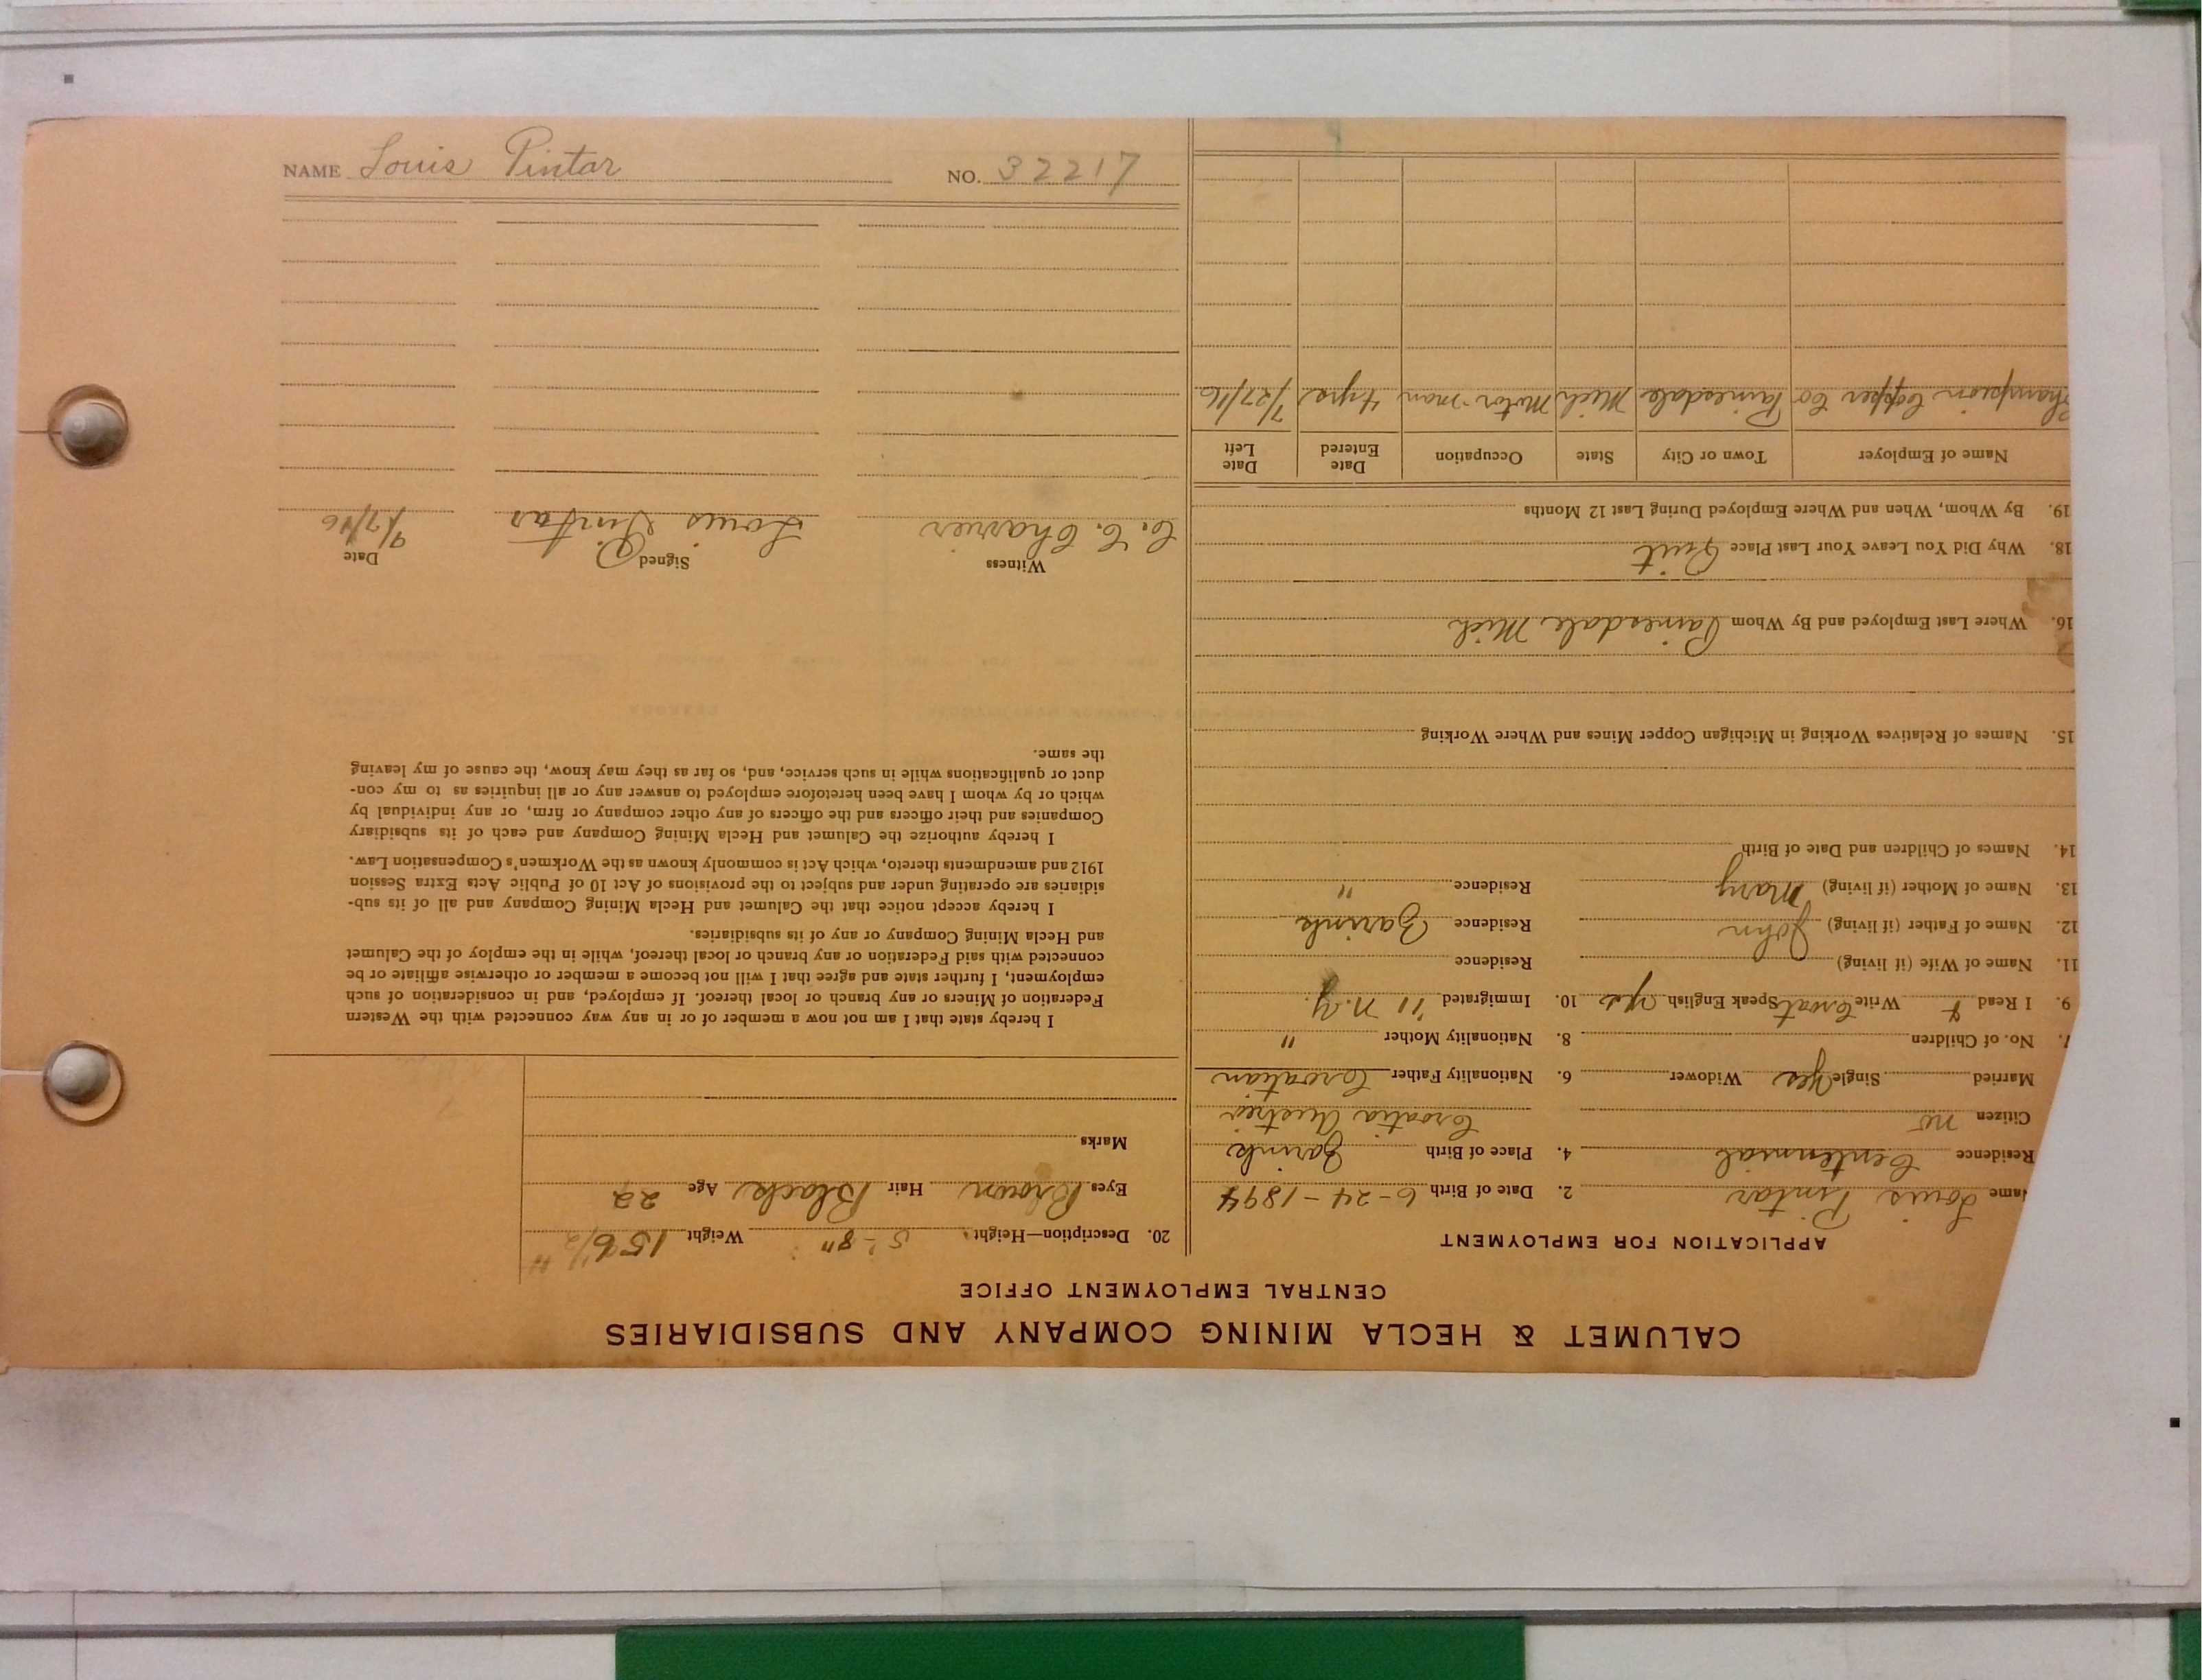 NAME Louis Pintar NO. 32217
CALUMET & HECLA MINING COMPANY AND SUBSIDIARIES
CENTRAL EMPLOYMENT OFFICE
APPLICATION FOR EMPLOYMENT
Name Louis Pintar 2. Date of Birth 6-24-1894
Residence Centennial 4. Place of Birth
Citizen no Croatia Austria
Married Single Yes Widower 6. Nationality Father Croatian
7. No. of Children 8. Nationality Mother "
9. I Read & Write Croat Speak English yes 10. Immigrated '11 N.Y.
11. Name of Wife (if living) Residence
12. Name of Father (if living) John Residence
13. Name of Mother (if living) Mary Residence "
14. Names of Children and Date of Birth
15. Names of Relatives Working in Michigan Copper Mines and Where Working
16. Where Last Employed and By Whom Painesdale Mich
18. Why Did You Leave Your Last Place Quit
19. By Whom, When and Where Employed During Last 12 Months
Name of Employer Town or City State Occupation Date Entered Date Left
Champion Copper Co Painesdale Mich Motor-man 4 yrs 7/27/16
20. Description—Height 5'-8" Weight 156 1/2 #
Eyes Brown Hair Black Age 22
Marks
I hereby state that I am not now a member of or in any way connected with the Western
Federation of Miners or any branch or local thereof. If employed, and in consideration of such
employment, I further state and agree that I will not become a member or otherwise affiliate or be
connected with said Federation or any branch or local thereof, while in the employ of the Calumet
and Hecla Mining Company or any of its subsidiaries.
I hereby accept notice that the Calumet and Hecla Mining Company and all of its sub-
sidiaries are operating under and subject to the provisions of Act 10 of Public Acts Extra Session
1912 and amendments thereto, which Act is commonly known as the Workmen's Compensation Law.
I hereby authorize the Calumet and Hecla Mining Company and each of its subsidiary
Companies and their officers and the officers of any other company or firm, or any individual by
which or by whom I have been heretofore employed to answer any or all inquiries as to my con-
duct or qualifications while in such service, and, so far as they may know, the cause of my leaving
the same.
Witness Signed Date
C. C. Louis Pintar 9/7/16